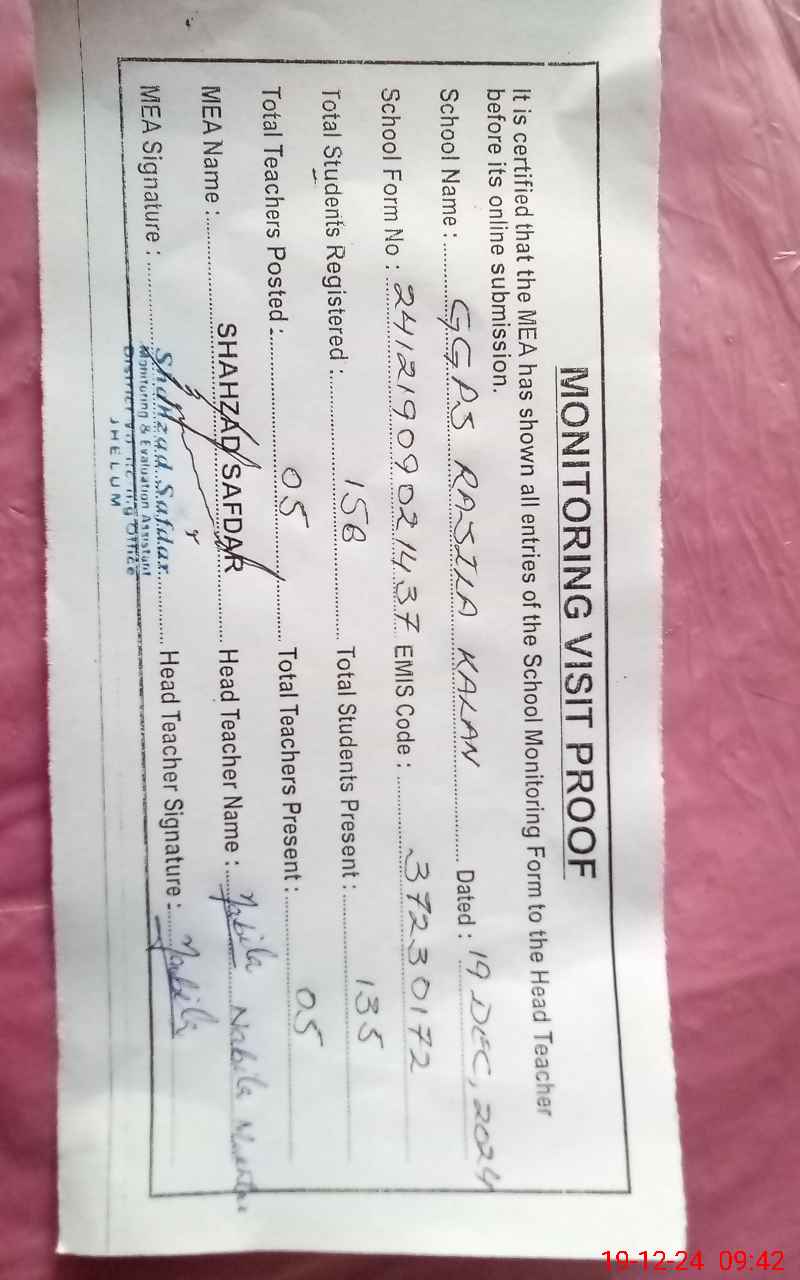 MONITORING VISIT PROOF
It is certified that the MEA has shown all entries of the School Monitoring Form to the Head Teacher
before its online submission.
School Name : GGPS RAJIKA KALAN Dated : 19 DEC, 2024
School Form No : 24121909021437 EMIS Code : 37230172
Total Students Registered : 158 Total Students Present : 135
Total Teachers Posted : 05 Total Teachers Present : 05
MEA Name : SHAHZAD SAFDAR Head Teacher Name : Nabila Nabila
MEA Signature : Head Teacher Signature : Nabila
Shahzad Safdar
Monitoring & Evaluation Assistant
District Monitoring Office
JHELUM
19-12-24 09:42